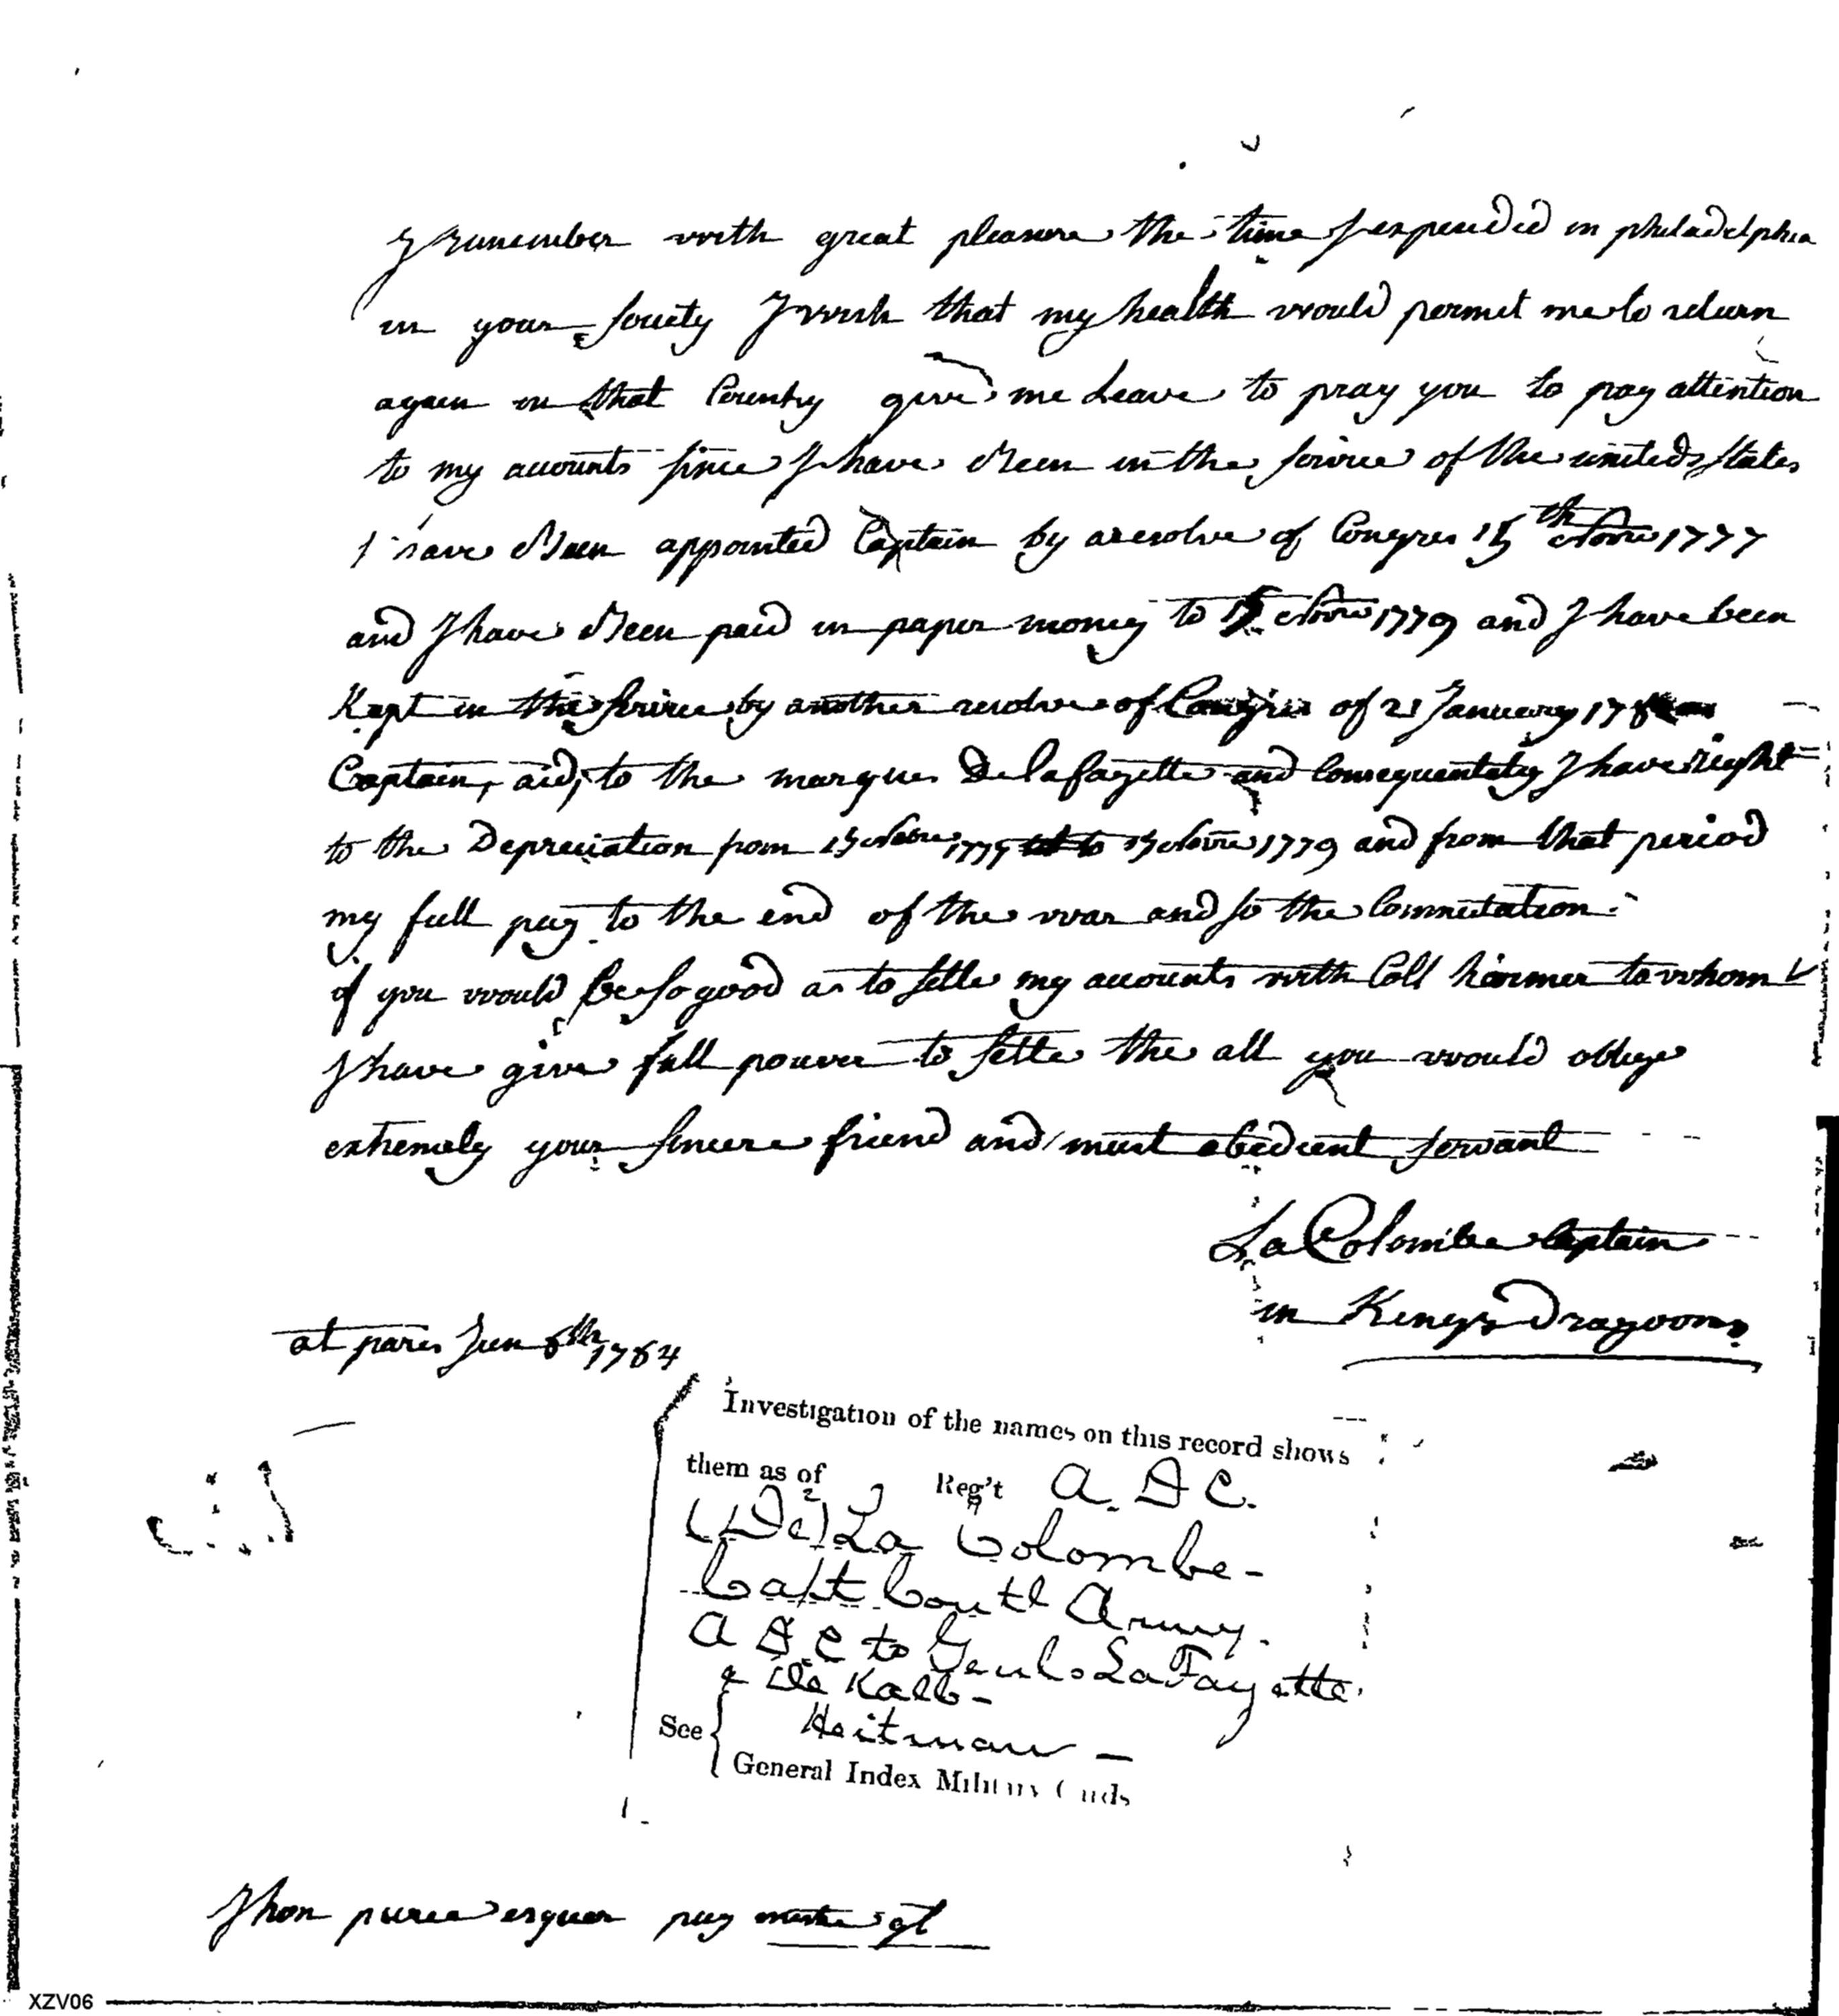 I remember with great pleasure the time I expended in philadelphia
in your society I wish that my health would permit me to return
again in that Country give me Leave to pray you to pay attention
to my accounts since I have Been in the service of the united States
I have Been appointed Captain by a resolve of Congres 15th 1777
and I have Been paid in paper money to 15 1779 and I have been
Kept in the service by another resolve of Congres of 21 January
Captain, aid, to the marques De lafayette and Consequentely I have right
to the Depreciation from 15 1777 to 15 1779 and from that period
my full pay to the end of the war and so the Commutation.
if you would be so good as to settle my accounts with Coll harmer to whom
I have give full power to settle the all you would oblige
extremely your sincere friend and most obedient servant
La Colombe Captain
in Kings Dragoons
at paris Jun 8th 1784
Investigation of the names on this record shows
them as of Reg't A. D C.
(De) La Colombe-
Capt Contl Army.
A D C to Genls LaFayette
& De Kalb-
See { Heitman —
General Index Military Cards
Jhon pierce esquer pay master gl
XZV06